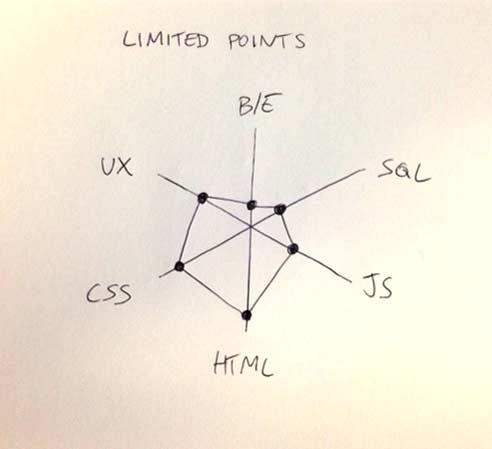 LIMITED POINTS
B/E
UX
SQL
CSS
JS
HTML